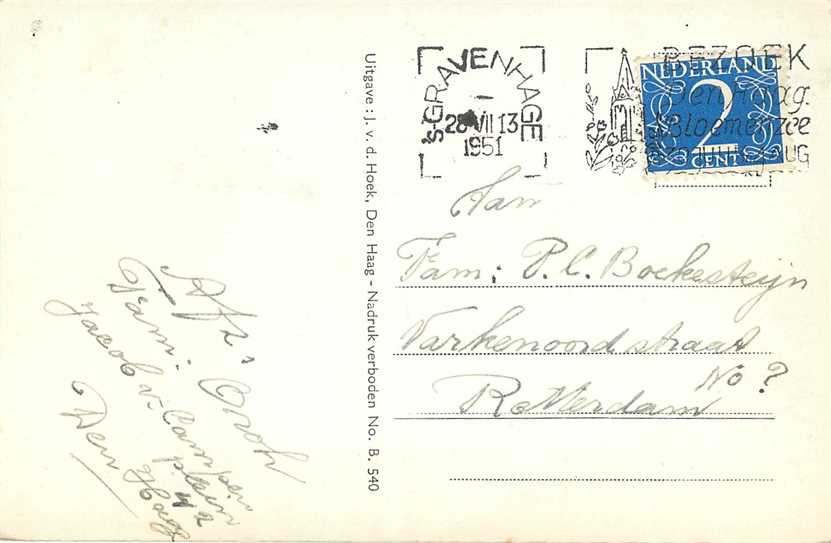 's-GRAVENHAGE
28 VII 13
1951
BEZOEK
Den Haag
Bloemenzee
AUG
NEDERLAND
2
CENT
Aan
Fam: P.C. Boekesteijn
Varkenoordstraat
No ?
Rotterdam
Uitgave : J. v. d. Hoek, Den Haag - Nadruk verboden No. B. 540
Afz:
Fam: Groh
Jacob v. Campen
plein
Den Haag